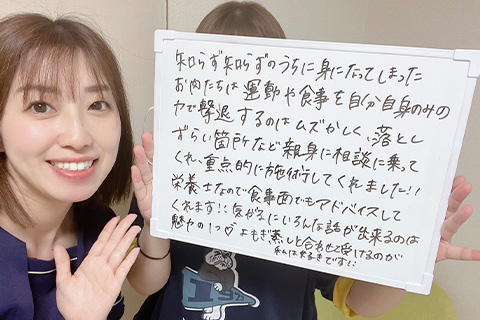 知らず知らずのうちに身になってしまった
お肉たちは運動や食事を自分自身のみの
力で撃退するのはムズかしく、落とし
ずらい箇所など親身に相談に乗って
くれ、重点的に施術してくれました!!
栄養士なので食事面でもアドバイスして
くれます!! 気がるにいろんな話が出来るのは
魅力の1つ♡ よもぎ蒸しと合わせて受けるのが
私は大好きです!!